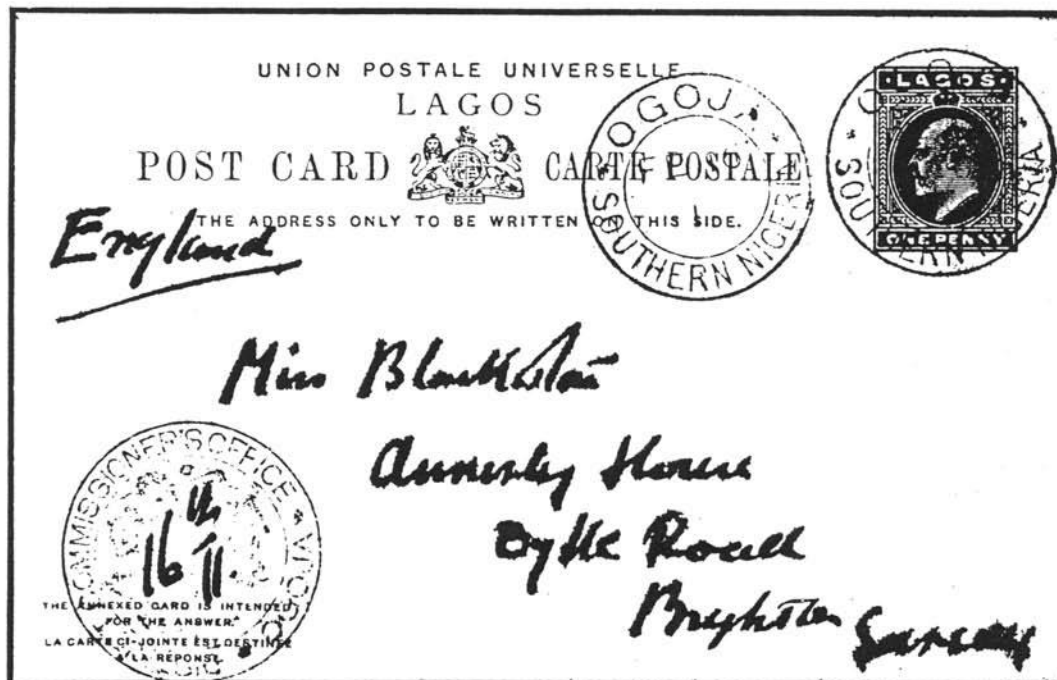 UNION POSTALE UNIVERSELLE
LAGOS
POST CARD CARTE POSTALE
THE ADDRESS ONLY TO BE WRITTEN ON THIS SIDE.
OGOJA
SOUTHERN NIGERIA
LAGOS
ONE PENNY
SOUTHERN NIGERIA
England
Miss
House
Road
Brighton
COMMISSIONER'S OFFICE
16th 11.
THE ANNEXED CARD IS INTENDED
FOR THE ANSWER.
LA CARTE CI-JOINTE EST DESTINÉE
À LA RÉPONSE.